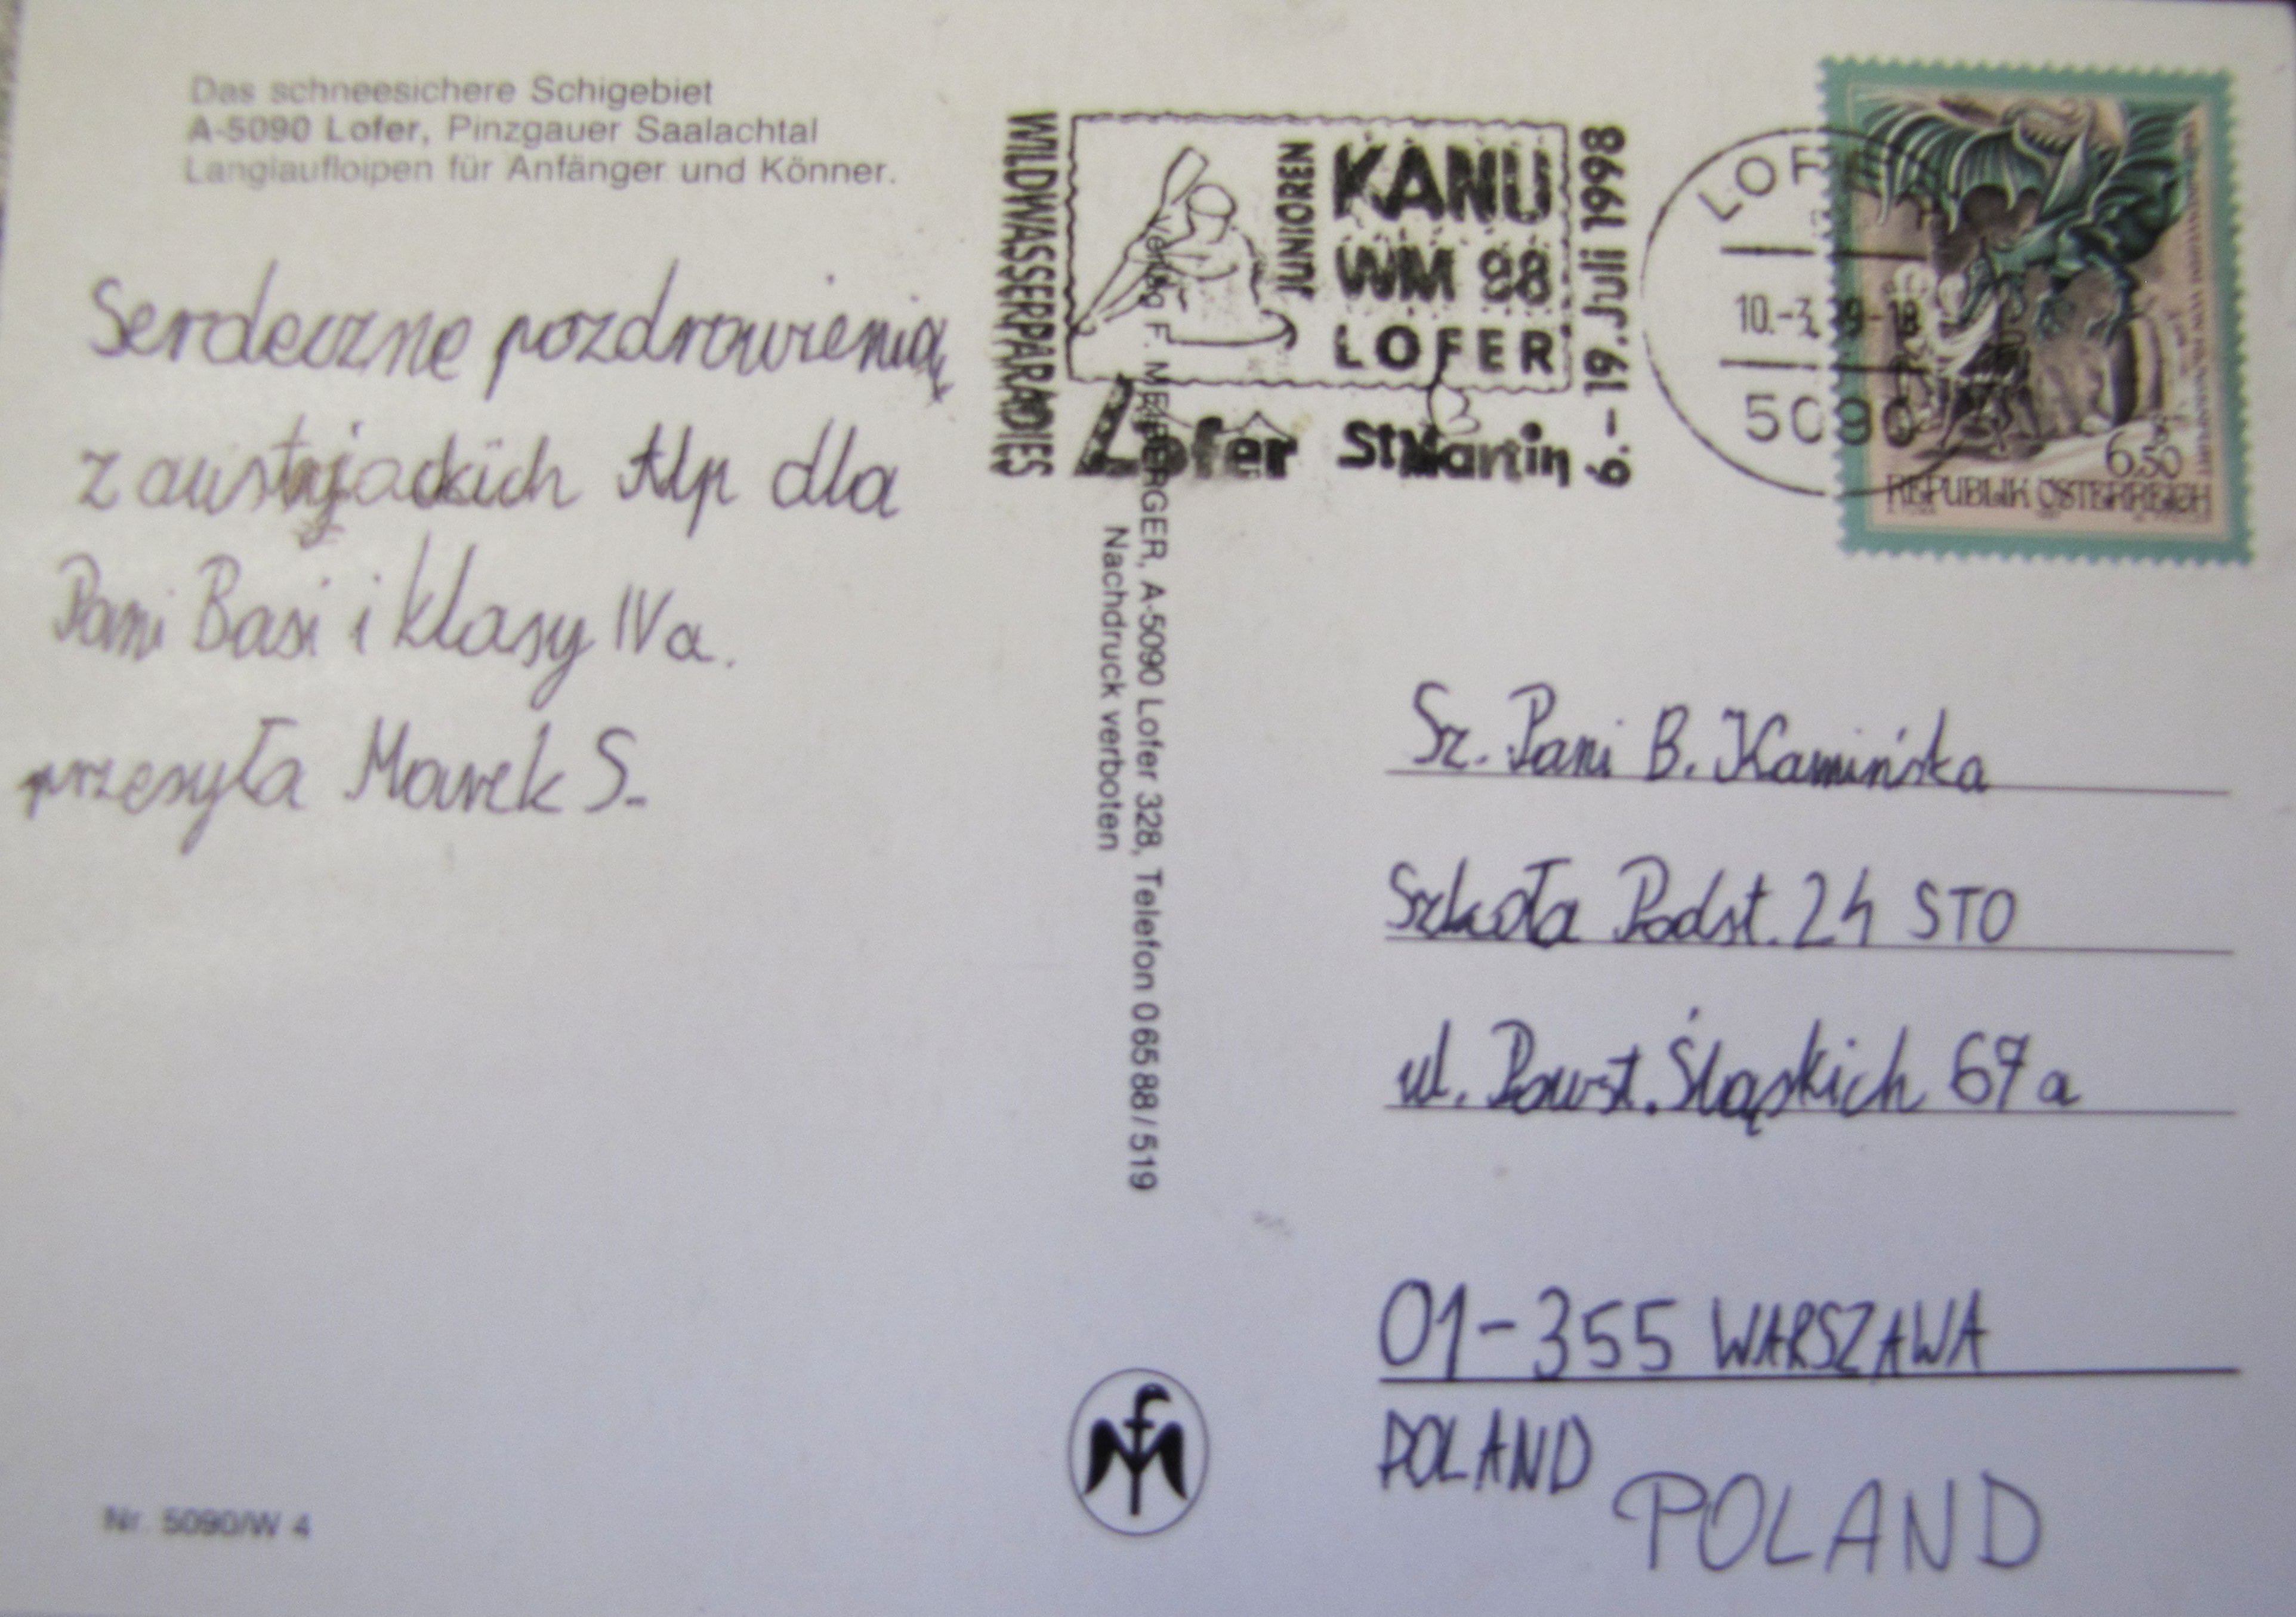 Das schneesichere Schigebiet
A-5090 Lofer, Pinzgauer Saalachtal
Langlaufloipen für Anfänger und Könner.
Serdeczne pozdrowienia,
z austrjackich Alp dla
Pani Basi i klasy IVa.
przesyła Marek S.
Nr. 5090/W 4
WILDWASSERPARADIES
JUNIOREN
KANU
WM 98
LOFER
Lofer St Martin
9.-19. Juli 1998
Verlag F. MEIBERGER, A-5090 Lofer 328, Telefon 0 65 88 / 519
Nachdruck verboten
10.-3.
5090
6.50
REPUBLIK ÖSTERREICH
Sz. Pani B. Kamińska
Szkoła Podst. 24 STO
ul. Powst. Śląskich 67a
01-355 WARSZAWA
POLAND
POLAND